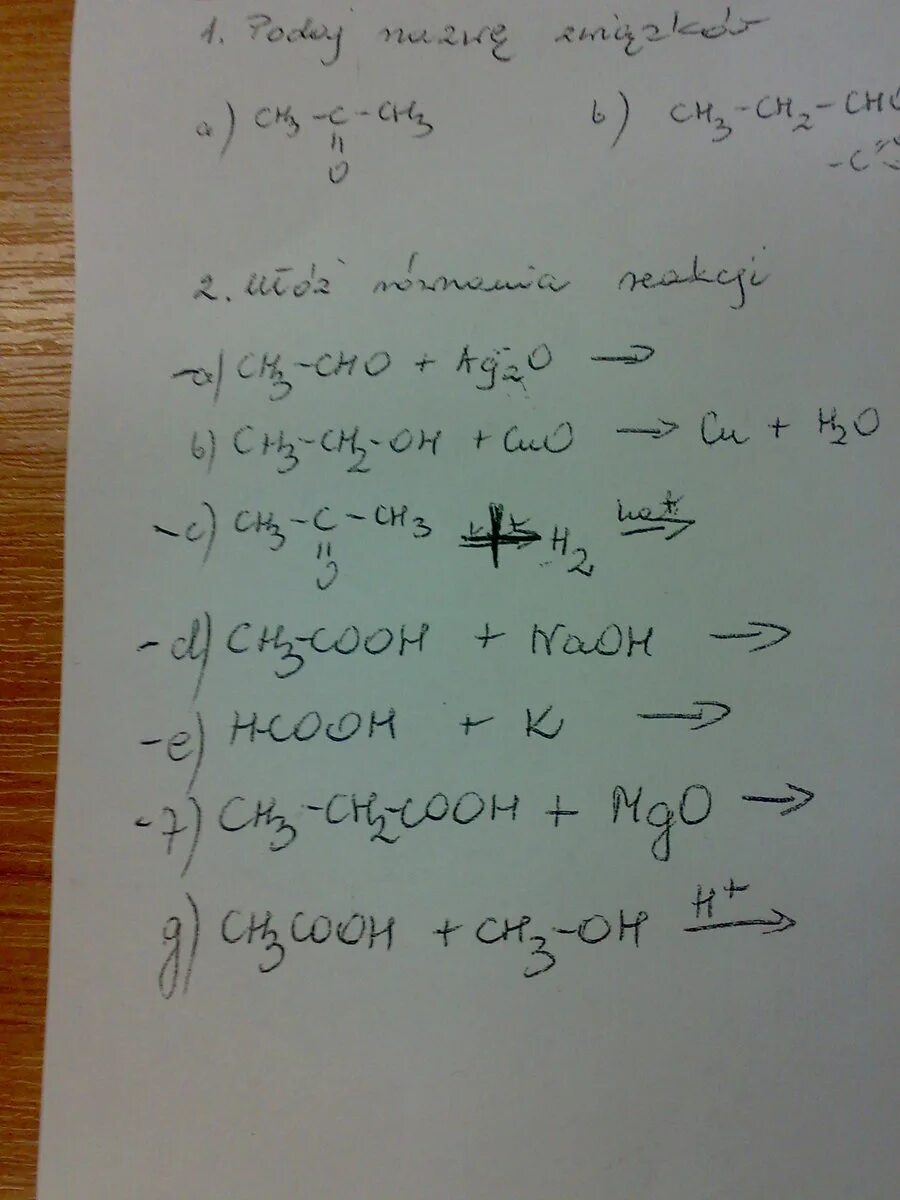 1. Podaj nazwę związków
a) CH3-C-CH3 b) CH3-CH2-CHO
=
O
2. Ułóż równania reakcji
-a) CH3-CHO + Ag2O →
b) CH3-CH2-OH + CuO → Cu + H2O
-c) CH3-C-CH3 H2 kat →
=
O
-d) CH3-COOH + NaOH →
-e) H-COOH + K →
-7) CH3-CH2-COOH + MgO →
g) CH3COOH + CH3-OH H+ →